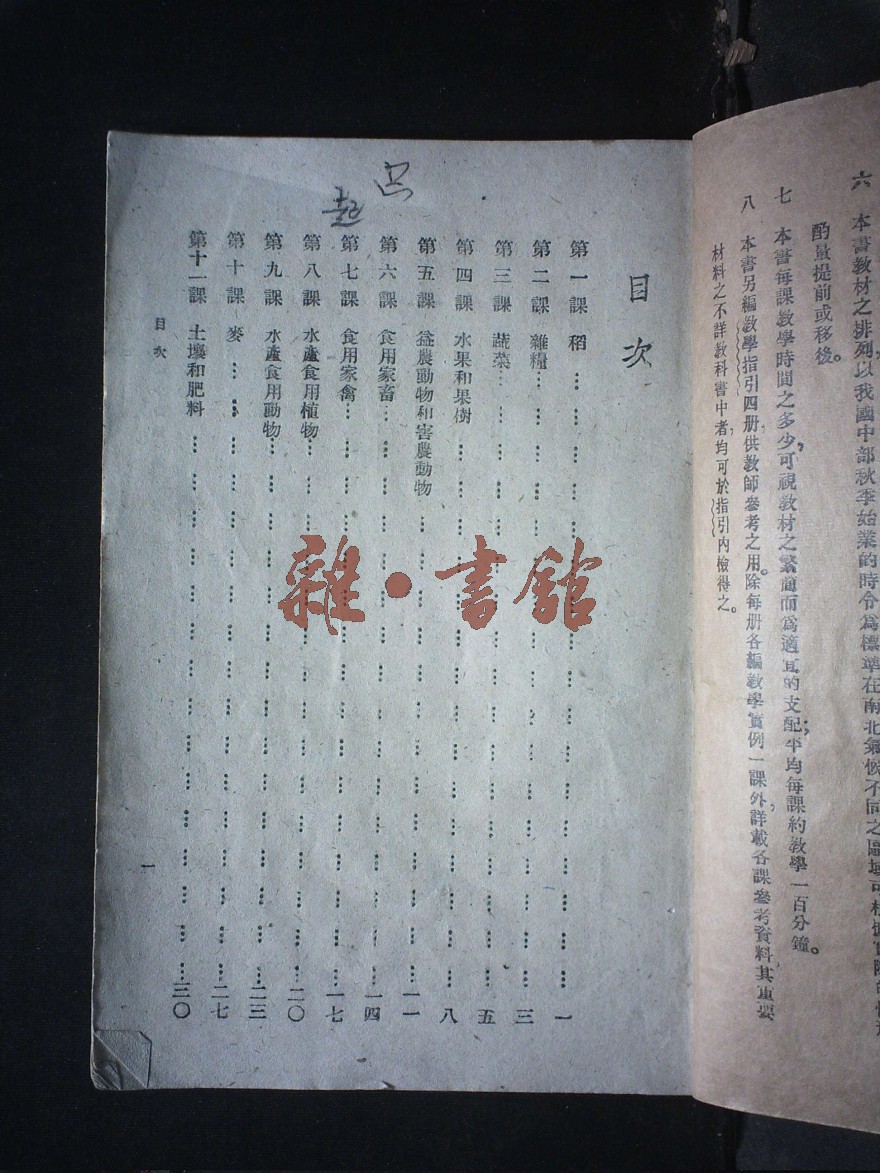 六　本書教材之排列，以我國中部秋季始業的時令爲標準，在南北氣候不同之區域，可
酌量提前或移後。
七　本書每課教學時間之多少，可視教材之繁簡而爲適宜的支配；平均每課約教學一百分鐘。
八　本書另編教學指引四册，供教師參考之用。除每册各編教學實例一課外，詳載各課參考資料，其重要
材料之不詳教科書中者，均可於指引內檢得之。
目次
第一課　稻……一
第二課　雜糧……三
第三課　蔬菜……五
第四課　水果和果樹……八
第五課　益農動物和害農動物……一一
第六課　食用家畜……一四
第七課　食用家禽……一七
第八課　水產食用植物……二〇
第九課　水產食用動物……二三
第十課　麥……二七
第十一課　土壤和肥料……三〇
目次
一
起
雜·書館